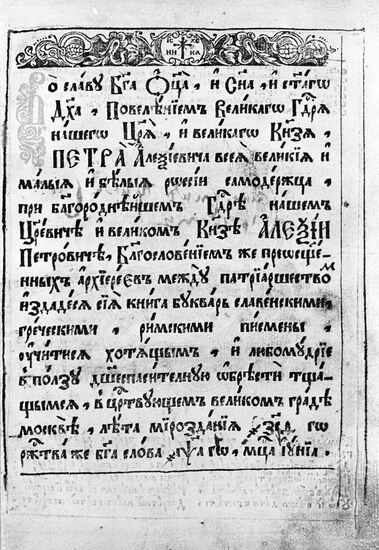 ІС ХС
НИ КА
Во славу Бг҃а Ѻц҃а, и Сн҃а, и ст҃агѡ
Дх҃а, Повелѣнїемъ Великагѡ Гд҇рѧ
нашегѡ Цр҃ѧ, и великагѡ Кн҃зѧ,
ПЕТРА Алеѯїевича всеѧ великїѧ и
малыѧ и бѣлыѧ рѡссїи самодержца,
при благороднѣйшемъ Гд҇рѣ нашемъ
Цр҃евичѣ и великомъ Кн҃зѣ АЛЕѮІИ
Петровичѣ, Благословенїемъ же преѡсщ҃е-
нныхъ архїереѡвъ между патрїаршествоⷨ
издадесѧ сїѧ книга букварь славенскими,
греческими, римскими писмены
ѹчитисѧ хотѧщымъ, и любомудрїе
в ползу дш҃еспⷭ҇ителную ѡбрѣсти тща-
щымсѧ, в црⷭ҇твующемъ великомъ градѣ
москвѣ, лѣта мірозданїѧ ҂зс҃ѳ гѡ
ржⷭ҇тва же бг҃а слова ҂аѱ҃а гѡ, мцⷭ҇а іунїа.